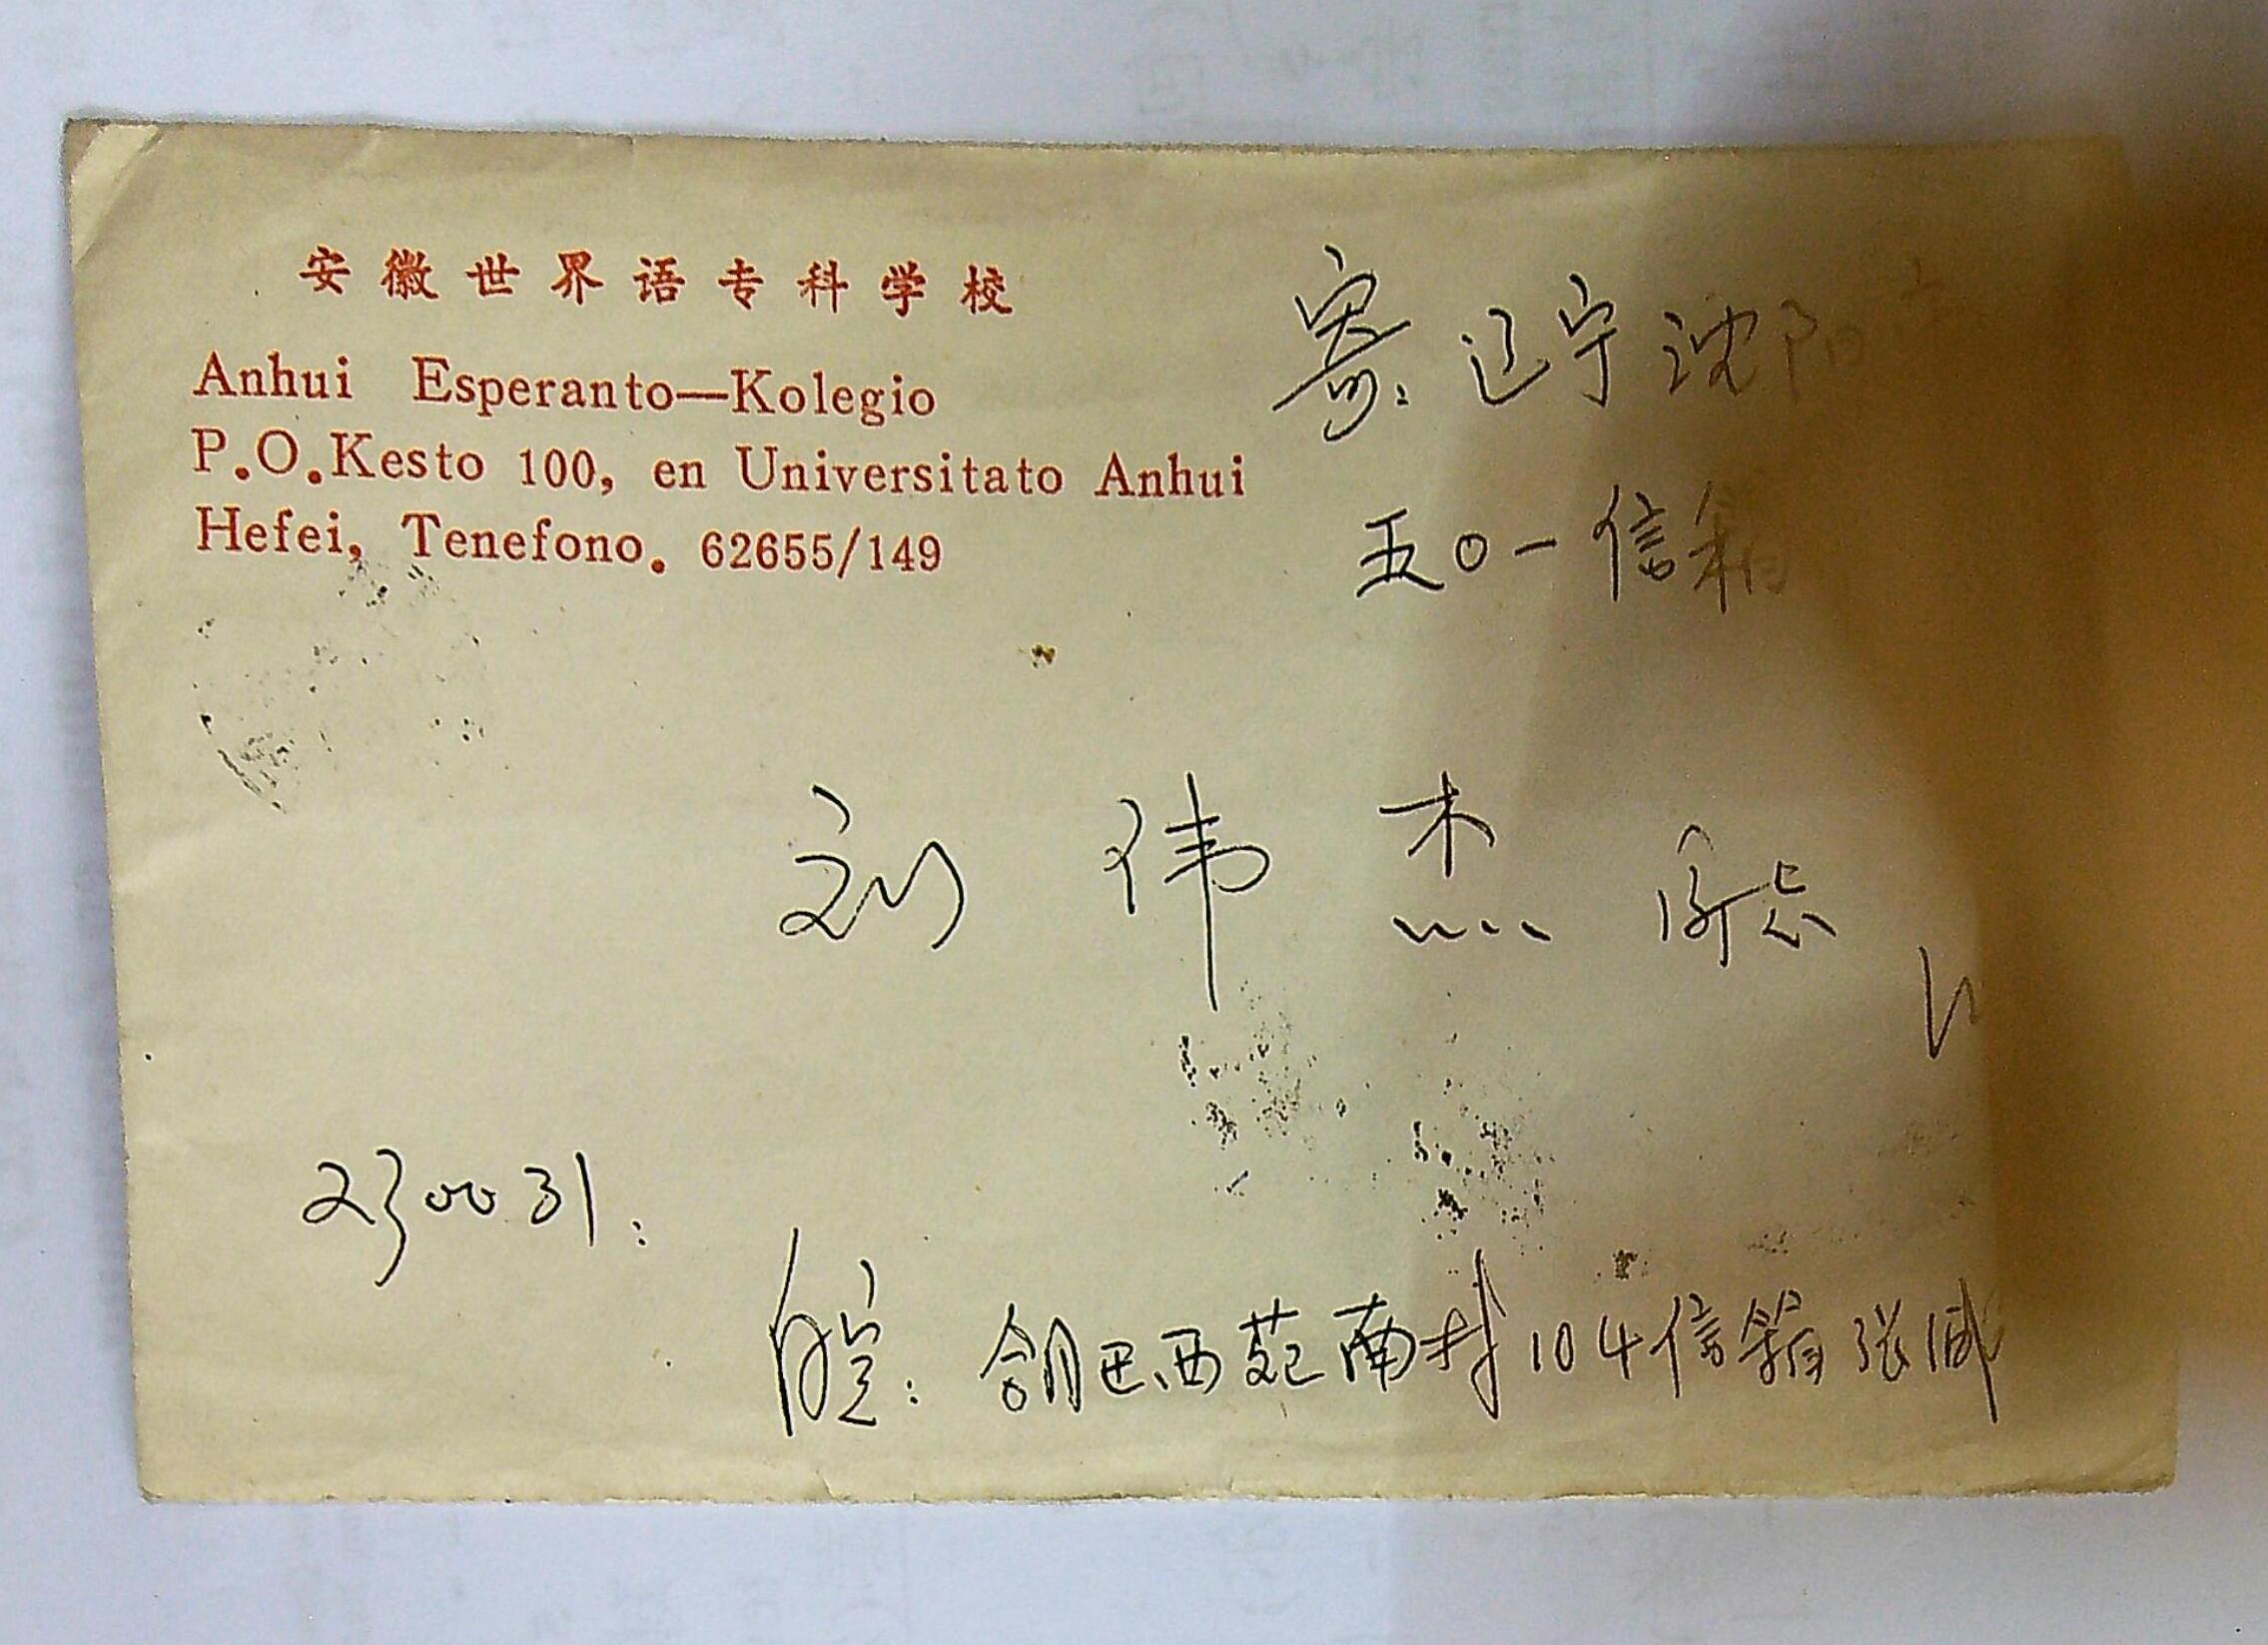 安徽世界语专科学校
Anhui Esperanto—Kolegio
P.O.Kesto 100, en Universitato Anhui
Hefei, Tenefono. 62655/149
寄：辽宁沈阳市
五〇一信箱
刘伟杰 同志
230031：
皖：合肥西苑南村104信箱张